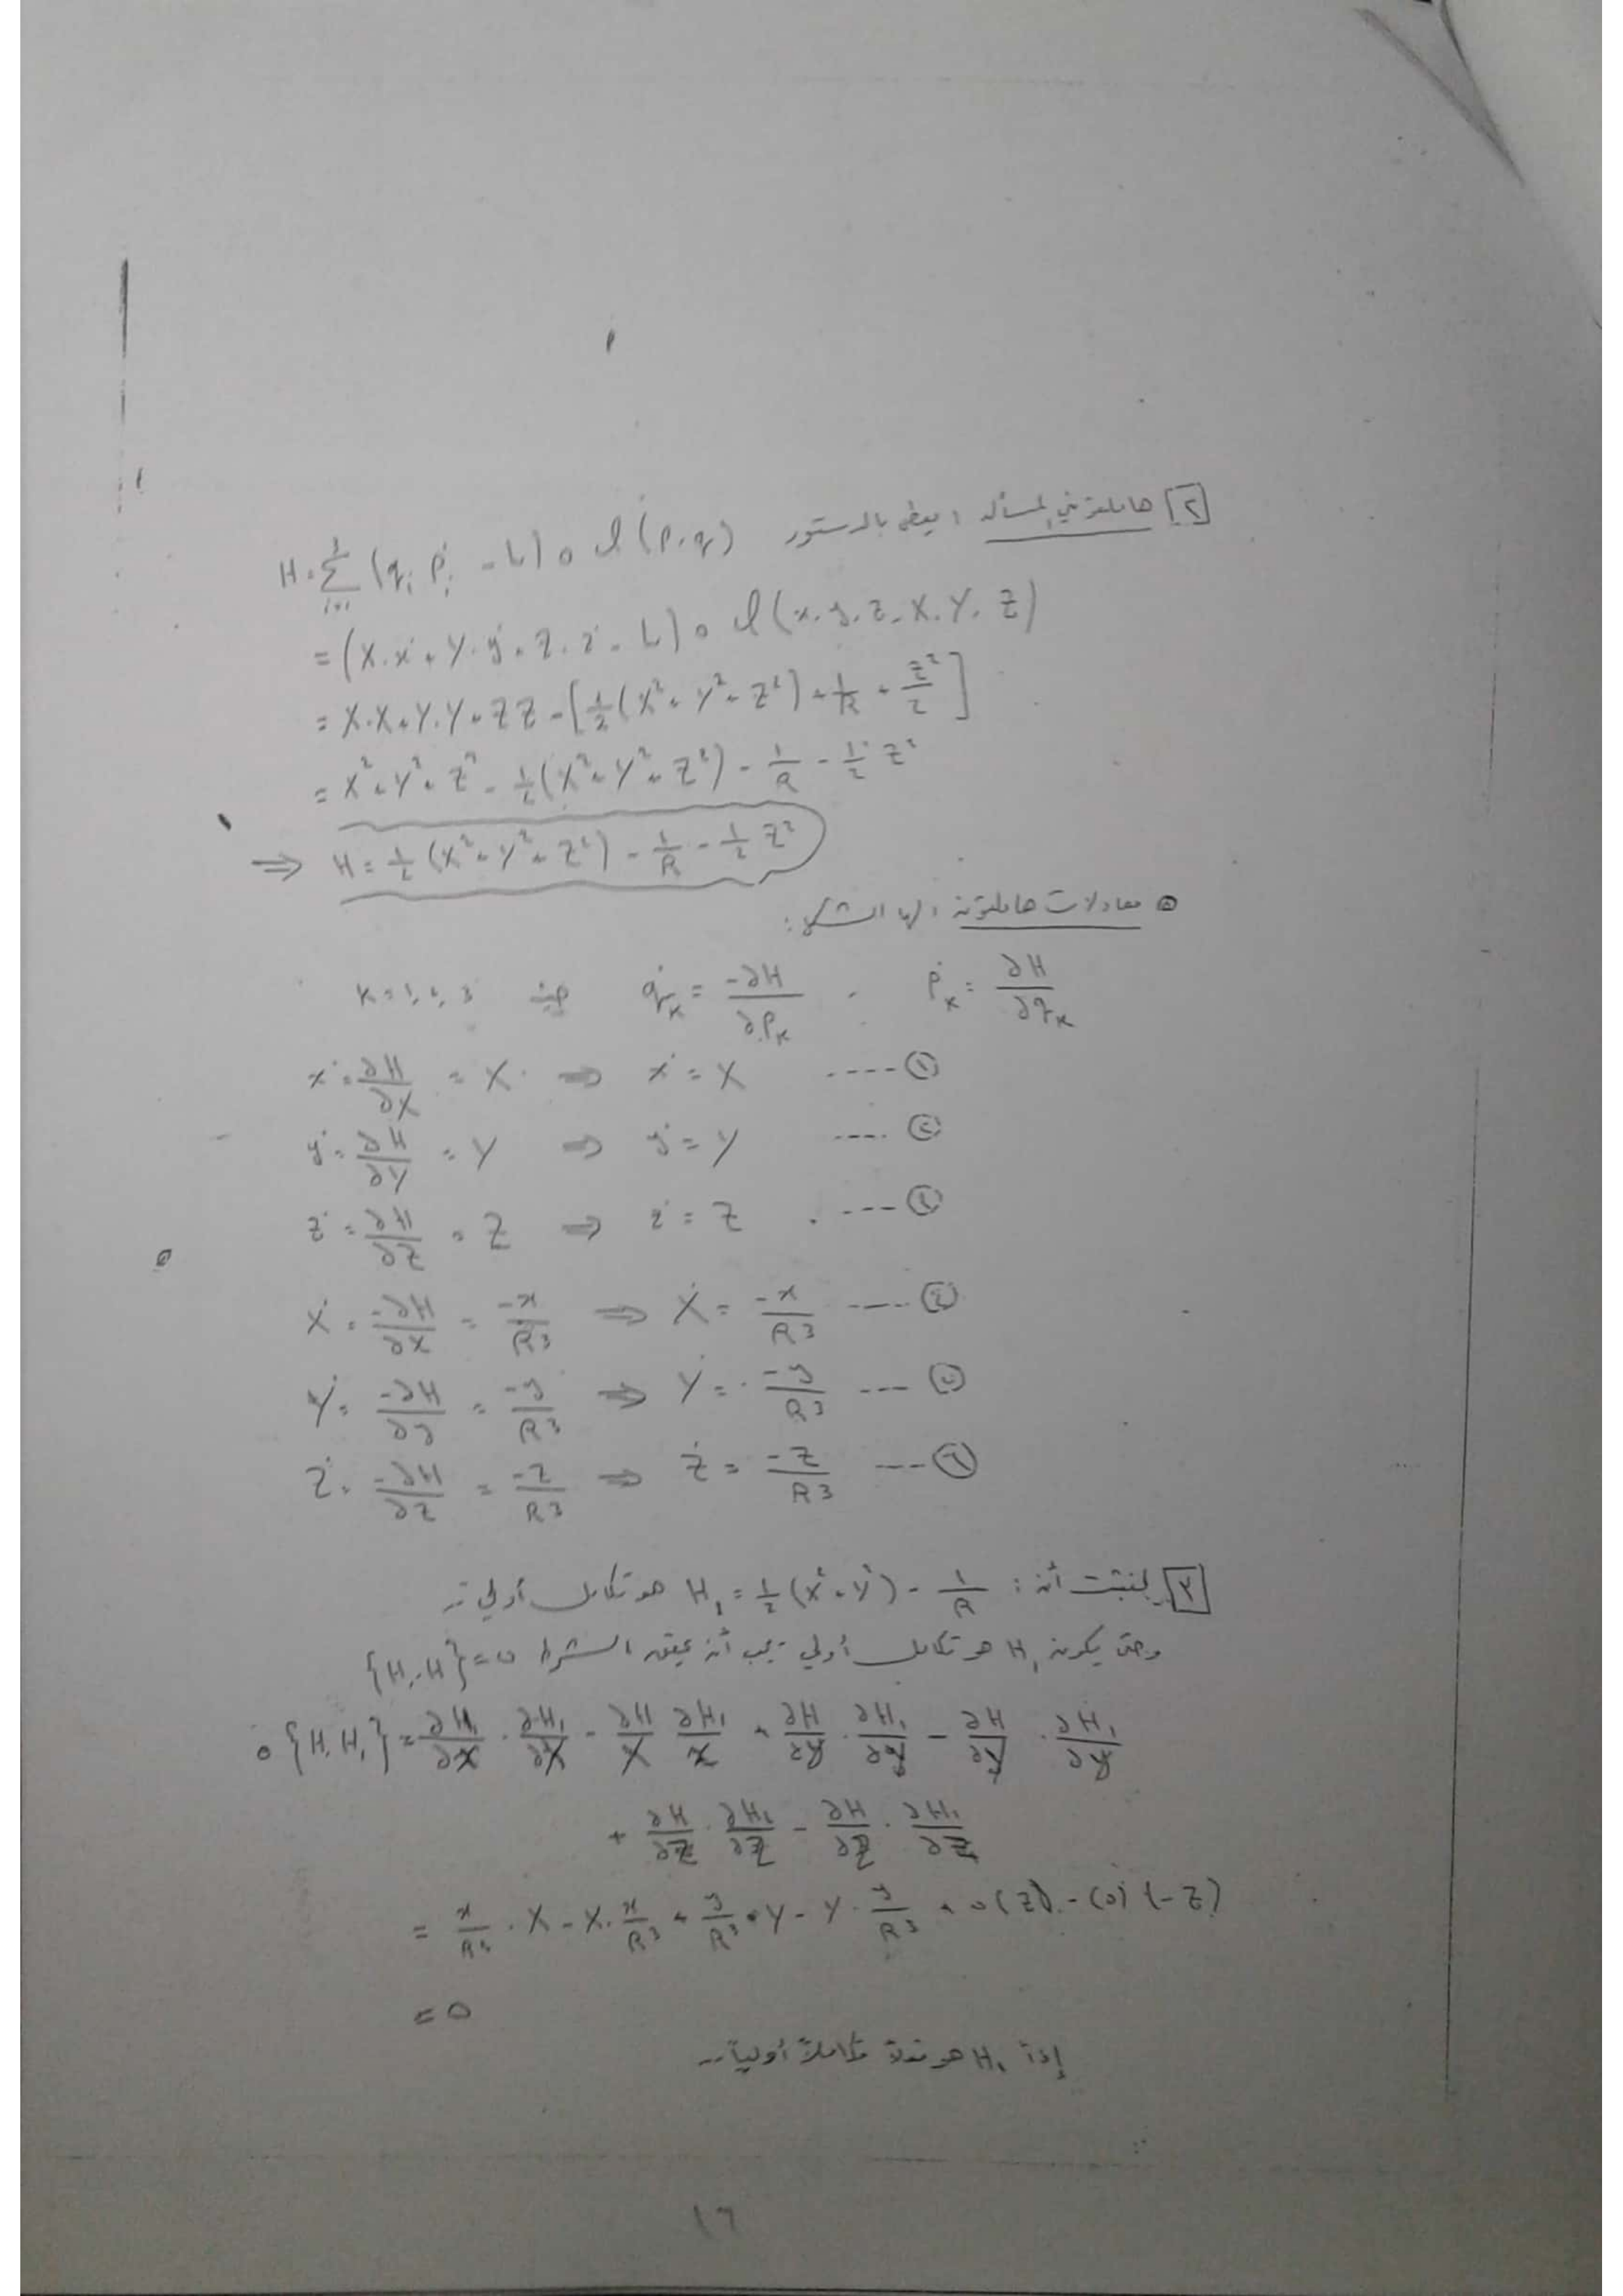 [٢] هاملتوني المسألة : يعطى بالدستور H = Σ_{i=1}^{3} (q̇_i p_i - L) ∘ ℓ(p, q)
= (X·ẋ + Y·ẏ + Z·ż - L) ∘ ℓ(x, y, z, X, Y, Z)
= X·X + Y·Y + Z Z - [1/2 (X² + Y² + Z²) + 1/R + z²/2]
= X² + Y² + Z² - 1/2 (X² + Y² + Z²) - 1/R - 1/2 z²
⇒ H = 1/2 (X² + Y² + Z²) - 1/R - 1/2 z²
معادلات هاملتون : لها الشكل :
ṗ_k = ∂H/∂q_k , q̇_k = -∂H/∂p_k حيث k = 1, 2, 3
ẋ = ∂H/∂X = X ⇒ ẋ = X ---- ①
ẏ = ∂H/∂Y = Y ⇒ ẏ = Y ---- ②
ż = ∂H/∂Z = Z ⇒ ż = Z ---- ③
Ẋ = -∂H/∂x = -x/R3 ⇒ Ẋ = -x/R3 ---- ④
Ẏ = -∂H/∂y = -y/R3 ⇒ Ẏ = -y/R3 --- ⑤
Ż = -∂H/∂z = -z/R3 ⇒ Ż = -z/R3 --- ⑥
[٣] لنثبت أن : H₁ = 1/2 (X² + Y²) - 1/R هو تكامل أولي ..
وحتى يكون H₁ هو تكامل أولي يجب أن يحقق الشرط {H₁, H} = 0
{H, H₁} = ∂H/∂x · ∂H₁/∂X - ∂H/X ∂H₁/x + ∂H/∂y · ∂H₁/∂Y - ∂H/∂Y · ∂H₁/∂y
+ ∂H/∂z · ∂H₁/∂Z - ∂H/∂Z · ∂H₁/∂z
= x/R3 · X - X · x/R3 + y/R3 · Y - Y · y/R3 + 0(z) - (0)(-z)
= 0
إذاً H₁ هو تكاملاً أولياً ..
١٦